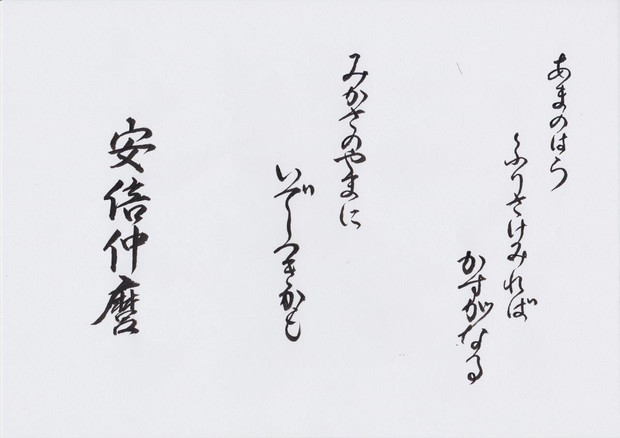 あまのはら
ふりさけみれば
かすがなる
みかさのやまに
いでしつきかも
安倍仲麿